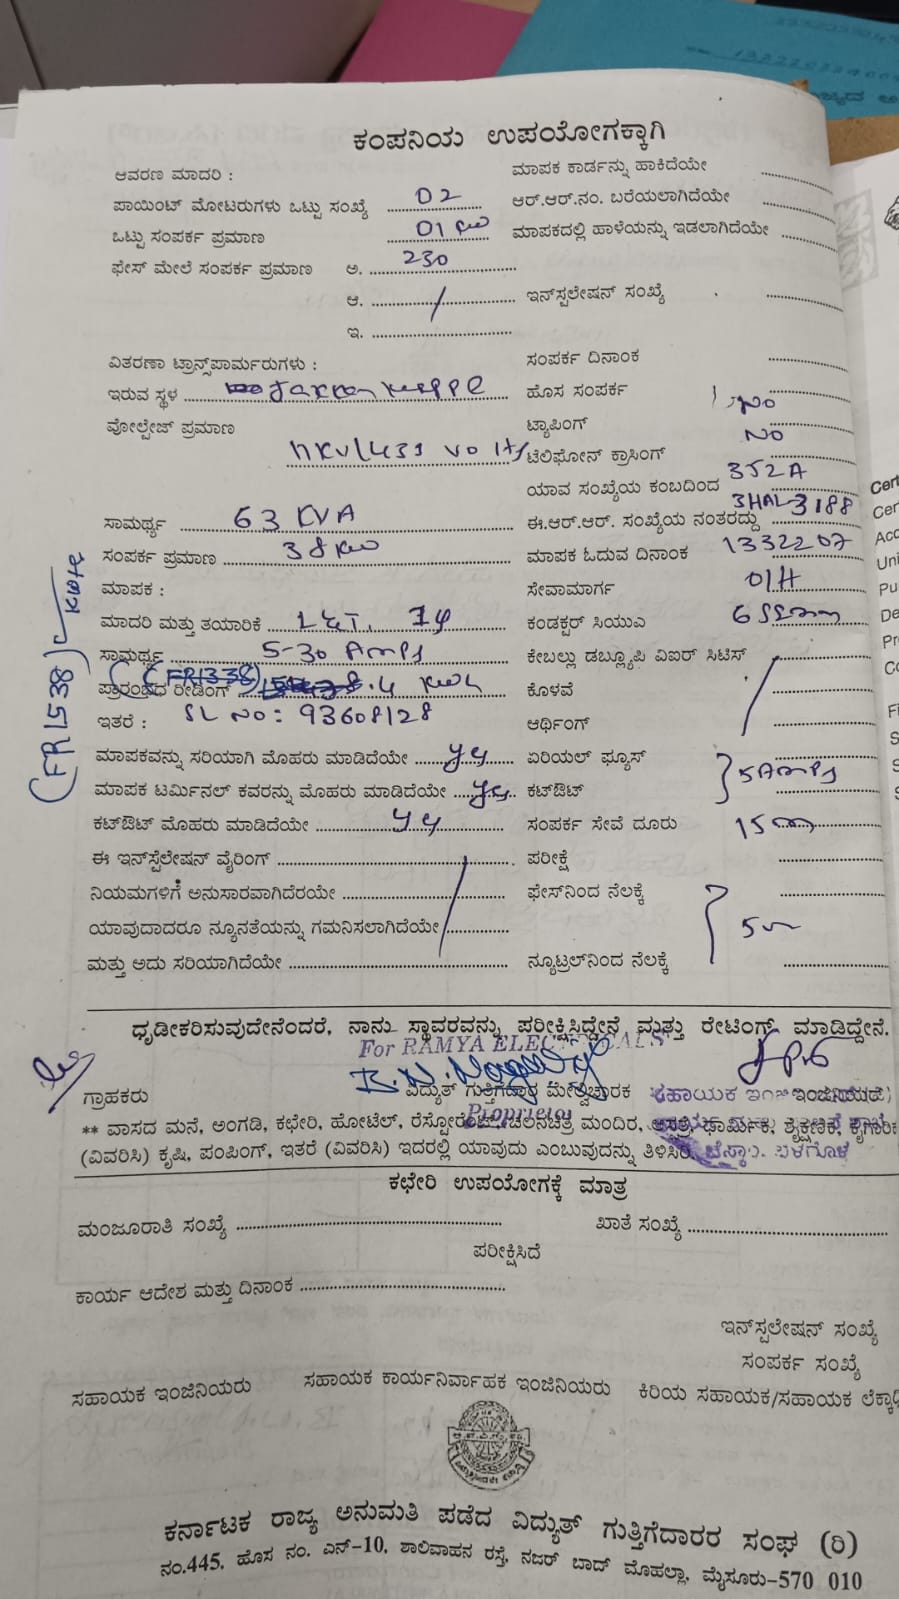 ಕಂಪನಿಯ ಉಪಯೋಗಕ್ಕಾಗಿ
ಆವರಣ ಮಾದರಿ : ಮಾಪಕ ಕಾರ್ಡನ್ನು ಹಾಕಿದೆಯೇ
ಪಾಯಿಂಟ್ ಮೋಟರುಗಳು ಒಟ್ಟು ಸಂಖ್ಯೆ 02 ಆರ್.ಆರ್.ನಂ. ಬರೆಯಲಾಗಿದೆಯೇ
ಒಟ್ಟು ಸಂಪರ್ಕ ಪ್ರಮಾಣ 01 KW ಮಾಪಕದಲ್ಲಿ ಹಾಳೆಯನ್ನು ಇಡಲಾಗಿದೆಯೇ
ಫೇಸ್ ಮೇಲೆ ಸಂಪರ್ಕ ಪ್ರಮಾಣ ಅ. 230
ಆ. ಇನ್‌ಸ್ಪಲೇಷನ್ ಸಂಖ್ಯೆ
ಇ.
ವಿತರಣಾ ಟ್ರಾನ್ಸ್‌ಪಾರ್ಮರುಗಳು : ಸಂಪರ್ಕ ದಿನಾಂಕ
ಇರುವ ಸ್ಥಳ ಹೊಸ ಸಂಪರ್ಕ
ವೋಲ್ಟೇಜ್ ಪ್ರಮಾಣ ಟ್ಯಾಪಿಂಗ್ NO
11KV/433 Volts ಟೆಲಿಫೋನ್ ಕ್ರಾಸಿಂಗ್ NO
ಯಾವ ಸಂಖ್ಯೆಯ ಕಂಬದಿಂದ 352A
ಸಾಮರ್ಥ್ಯ 63 KVA ಈ.ಆರ್.ಆರ್. ಸಂಖ್ಯೆಯ ನಂತರದ್ದು 3HAL3188
ಸಂಪರ್ಕ ಪ್ರಮಾಣ 38 KW ಮಾಪಕ ಓದುವ ದಿನಾಂಕ 1332207
ಮಾಪಕ : ಸೇವಾಮಾರ್ಗ O/H
ಮಾದರಿ ಮತ್ತು ತಯಾರಿಕೆ L&T. 1φ ಕಂಡಕ್ಟರ್ ಸಿಯುಎ
ಸಾಮರ್ಥ್ಯ 5-30 Amps ಕೇಬಲ್ಲು ಡಬ್ಲ್ಯೂಪಿ ವಿಐರ್ ಸಿಟಿಸ್
ಪ್ರಾರಂಭದ ರೀಡಿಂಗ್ (FR1338) 8.4 KWh ಕೊಳವೆ
ಇತರೆ : SL NO: 93608128 ಆರ್ಥಿಂಗ್
ಮಾಪಕವನ್ನು ಸರಿಯಾಗಿ ಮೊಹರು ಮಾಡಿದೆಯೇ yes ಏರಿಯಲ್ ಫ್ಯೂಸ್
ಮಾಪಕ ಟರ್ಮಿನಲ್ ಕವರನ್ನು ಮೊಹರು ಮಾಡಿದೆಯೇ yes ಕಟ್‌ಔಟ್ 5Amps
ಕಟ್‌ಔಟ್ ಮೊಹರು ಮಾಡಿದೆಯೇ yes ಸಂಪರ್ಕ ಸೇವೆ ದೂರು 15m
ಈ ಇನ್‌ಸ್ಪೆಲೇಷನ್ ವೈರಿಂಗ್ ಪರೀಕ್ಷೆ
ನಿಯಮಗಳಿಗೆ ಅನುಸಾರವಾಗಿದೆರಯೇ ಫೇಸ್‌ನಿಂದ ನೆಲಕ್ಕೆ
ಯಾವುದಾದರೂ ನ್ಯೂನತೆಯನ್ನು ಗಮನಿಸಲಾಗಿದೆಯೇ
ಮತ್ತು ಅದು ಸರಿಯಾಗಿದೆಯೇ ನ್ಯೂಟ್ರಲ್‌ನಿಂದ ನೆಲಕ್ಕೆ
ಧೃಡೀಕರಿಸುವುದೇನೆಂದರೆ, ನಾನು ಸ್ಥಾವರವನ್ನು ಪರೀಕ್ಷಿಸಿದ್ದೇನೆ ಮತ್ತು ರೇಟಿಂಗ್ ಮಾಡಿದ್ದೇನೆ.
For RAMYA ELECTRICALS
ಗ್ರಾಹಕರು ವಿದ್ಯುತ್ ಗುತ್ತಿಗೆದಾರ ಮೇಲ್ವಿಚಾರಕ ಸಹಾಯಕ
Proprietor
** ವಾಸದ ಮನೆ, ಅಂಗಡಿ, ಕಛೇರಿ, ಹೋಟೆಲ್, ರೆಸ್ಟೋರೆಂಟ್, ಚಲನಚಿತ್ರ ಮಂದಿರ, ಆಸ್ಪತ್ರೆ, ಧಾರ್ಮಿಕ, ಶೈಕ್ಷಣಿಕ, ಕೈಗಾರಿಕ
(ವಿವರಿಸಿ) ಕೃಷಿ, ಪಂಪಿಂಗ್, ಇತರೆ (ವಿವರಿಸಿ) ಇದರಲ್ಲಿ ಯಾವುದು ಎಂಬುವುದನ್ನು ತಿಳಿಸಿರಿ.
ಕಛೇರಿ ಉಪಯೋಗಕ್ಕೆ ಮಾತ್ರ
ಮಂಜೂರಾತಿ ಸಂಖ್ಯೆ ಖಾತೆ ಸಂಖ್ಯೆ
ಪರೀಕ್ಷಿಸಿದೆ
ಕಾರ್ಯ ಆದೇಶ ಮತ್ತು ದಿನಾಂಕ
ಇನ್‌ಸ್ಪಲೇಷನ್ ಸಂಖ್ಯೆ
ಸಂಪರ್ಕ ಸಂಖ್ಯೆ
ಸಹಾಯಕ ಇಂಜಿನಿಯರು ಸಹಾಯಕ ಕಾರ್ಯನಿರ್ವಾಹಕ ಇಂಜಿನಿಯರು ಕಿರಿಯ ಸಹಾಯಕ/ಸಹಾಯಕ
ಕರ್ನಾಟಕ ರಾಜ್ಯ ಅನುಮತಿ ಪಡೆದ ವಿದ್ಯುತ್ ಗುತ್ತಿಗೆದಾರರ ಸಂಘ (ರಿ)
ನಂ.445, ಹೊಸ ನಂ. ಎನ್-10, ಶಾಲಿವಾಹನ ರಸ್ತೆ, ನಜರ್ ಬಾದ್ ಮೊಹಲ್ಲಾ, ಮೈಸೂರು-570 010